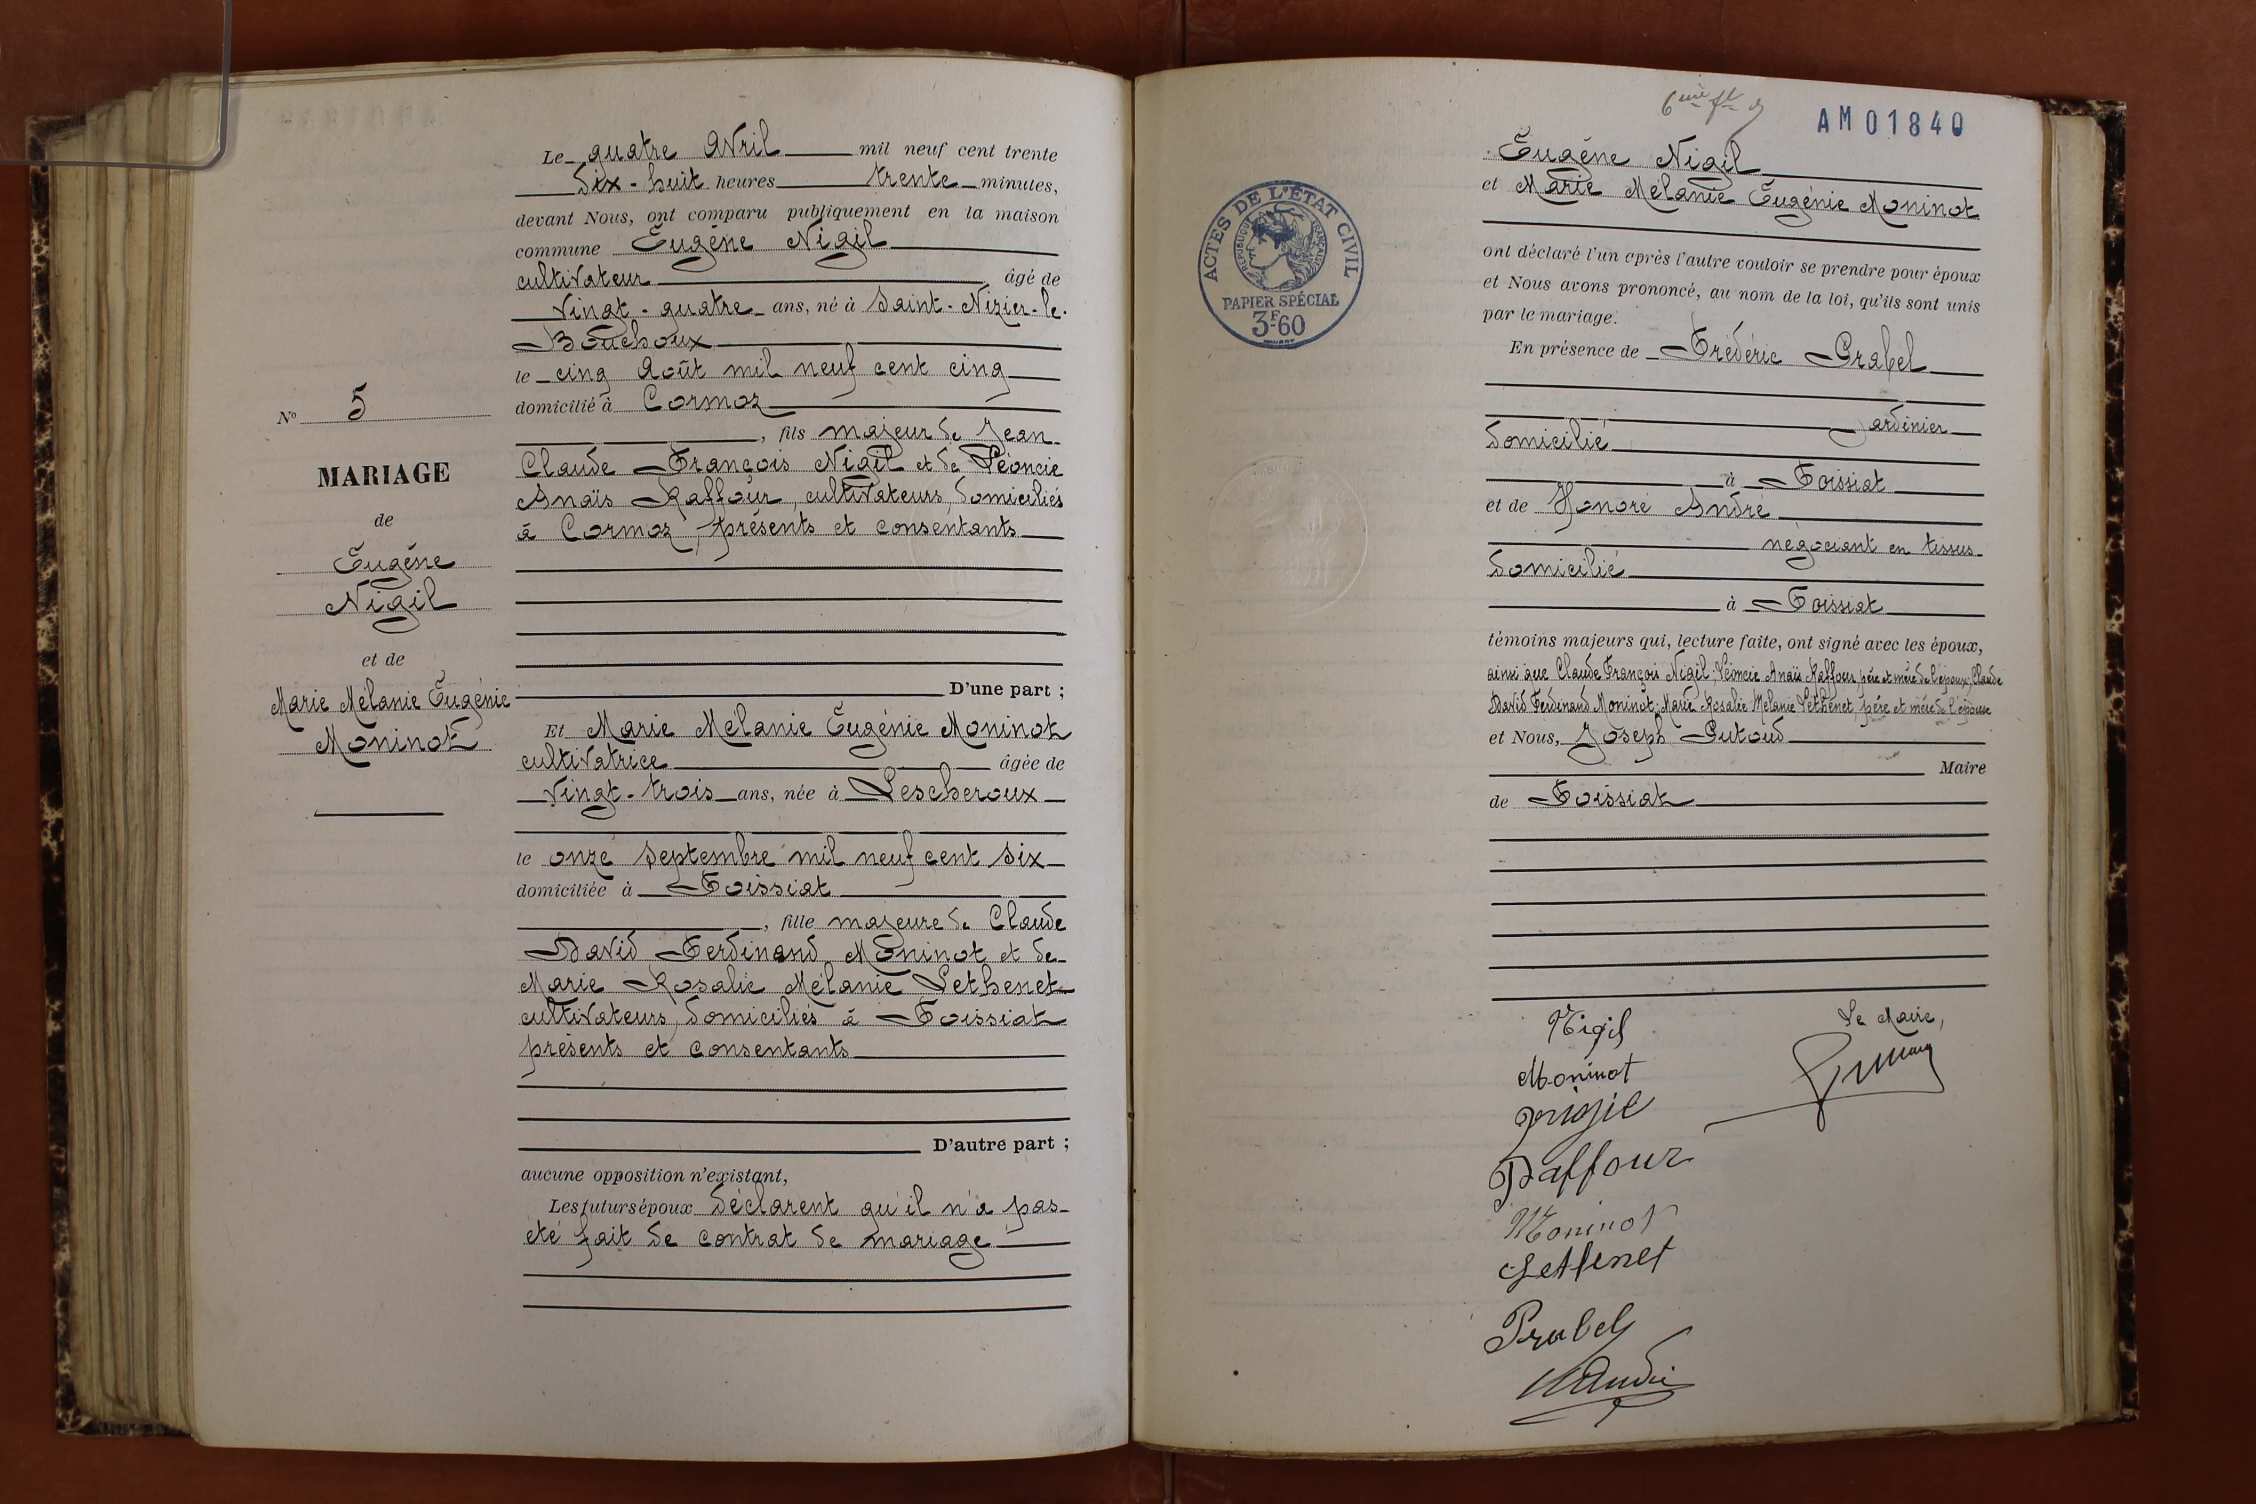 Le quatre Avril mil neuf cent trente
dix-huit heures trente minutes,
devant Nous, ont comparu publiquement en la maison
commune Eugène Nigil
cultivateur âgé de
vingt-quatre ans, né à Saint-Nizier-le-
Bouchoux
le cinq Août mil neuf cent cinq
domicilié à Cormoz
, fils majeur de Jean
Claude François Nigil et de Léoncie
Anaïs Raffour, cultivateurs, domiciliés
à Cormoz, présents et consentants
D'une part ;
Et Marie Mélanie Eugénie Moninot
cultivatrice âgée de
vingt-trois ans, née à Lescheroux
le onze septembre mil neuf cent six
domiciliée à Foissiat
, fille majeure de Claude
David Ferdinand Moninot et de
Marie Rosalie Mélanie Lethenet
cultivateurs, domiciliés à Foissiat
présents et consentants
D'autre part ;
aucune opposition n'existant,
Les futurs époux déclarent qu'il n'a pas
été fait de contrat de mariage
No 5
MARIAGE
de
Eugène
Nigil
et de
Marie Mélanie Eugénie
Moninot
AM01840
ACTES DE L'ÉTAT CIVIL
RÉPUBLIQUE FRANÇAISE
PAPIER SPÉCIAL
3F60
Eugène Nigil
et Marie Mélanie Eugénie Moninot
ont déclaré l'un après l'autre vouloir se prendre pour époux
et Nous avons prononcé, au nom de la loi, qu'ils sont unis
par le mariage.
En présence de Frédéric Prabel
jardinier
domicilié
à Foissiat
et de Honoré André
négociant en tissus
domicilié
à Foissiat
témoins majeurs qui, lecture faite, ont signé avec les époux,
ainsi que Claude François Nigil, Léoncie Anaïs Raffour, père et mère de l'époux, Claude
David Ferdinand Moninot, Marie Rosalie Mélanie Lethenet, père et mère de l'épouse
et Nous, Joseph Putoud
Maire
de Foissiat
Nigil
Le Maire,
Moninot
Nigil
Raffour
Moninot
Lethenet
Prabel
H André